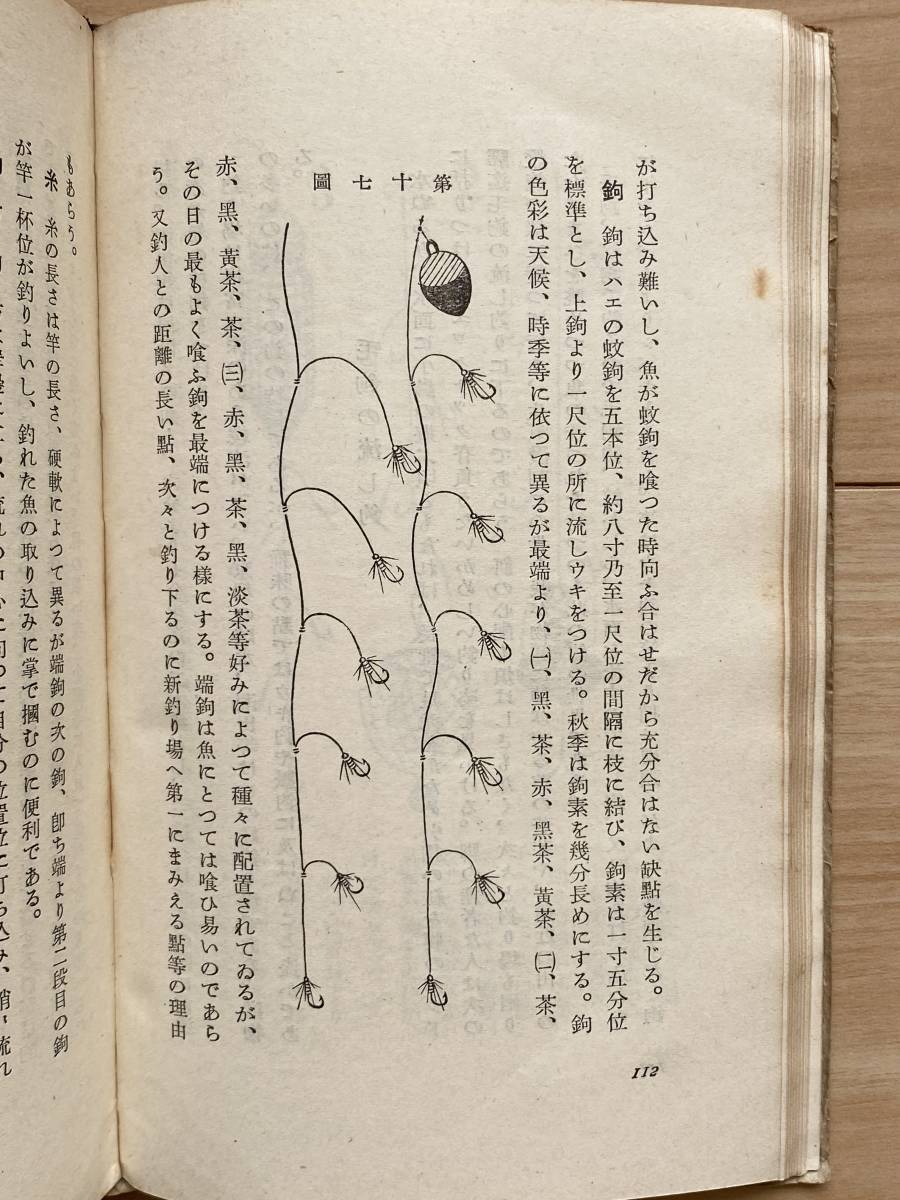 が打ち込み難いし、魚が蚊鉤を喰つた時向ふ合はせだから充分合はない缺點を生じる。
鉤　鉤はハエの蚊鉤を五本位、約八寸乃至一尺位の間隔に枝に結び、鉤素は一寸五分位
を標準とし、上鉤より一尺位の所に流しウキをつける。秋季は鉤素を幾分長めにする。鉤
の色彩は天候、時季等に依つて異るが最端より、㈠、黑、茶、赤、黑茶、黃茶、㈡、茶、
第十七圖
赤、黑、黃茶、茶、㈢、赤、黑、茶、黑、淡茶等好みによつて種々に配置されてゐるが、
その日の最もよく喰ふ鉤を最端につける樣にする。端鉤は魚にとつては喰ひ易いのであら
う。又釣人との距離の長い點、次々と釣り下るのに新釣り場へ第一にまみえる點等の理由
112
もあらう。
糸　糸の長さは竿の長さ、硬軟によつて異るが端鉤の次の鉤、卽ち端より第二段目の鉤
が竿一杯位が釣りよいし、釣れた魚の取り込みに掌で摑むのに便利である。